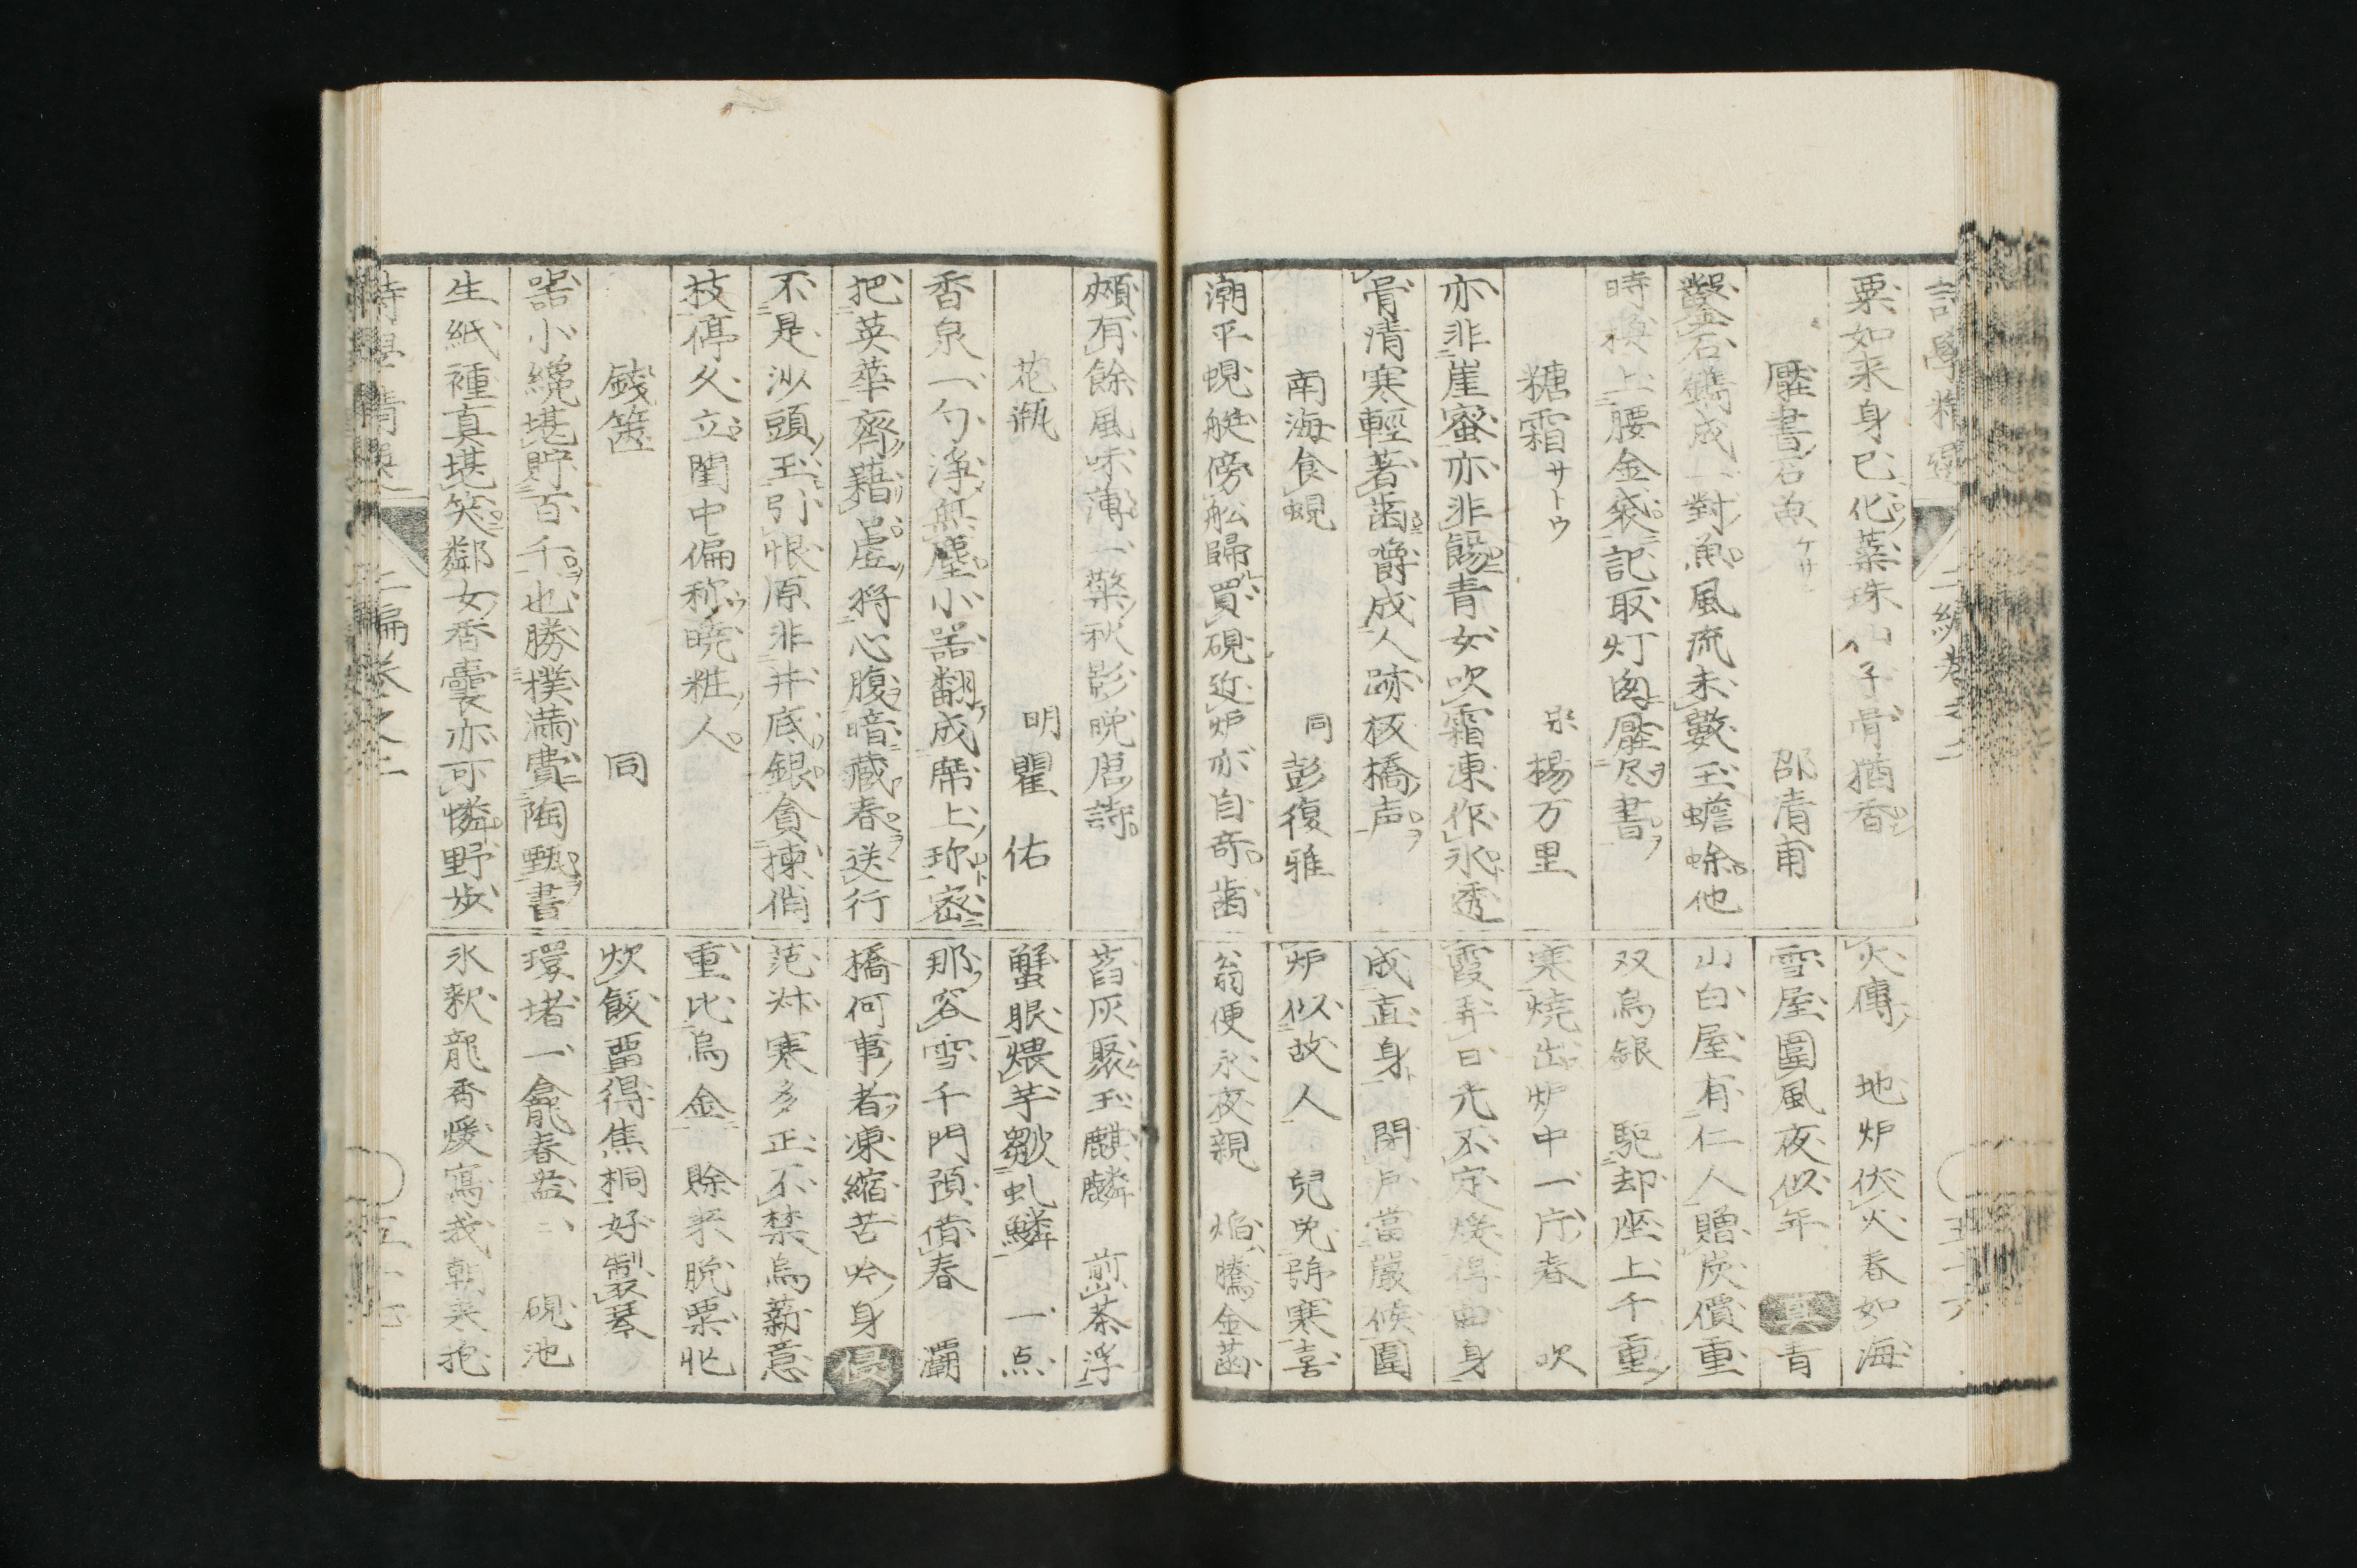 粟如来身已化蕊珠仙子骨猶香
壓書石魚ケサン　邵清甫
鑿石鐫成一對魚風流未數玉蟾蜍他
時換上腰金袋記取灯囱壓尽書
糖霜サトウ　宋楊万里
亦非崖蜜亦非餳青女吹霜凍作氷透
骨清寒輕著歯嚼成人跡板橋声
南海食蜆　同彭復雅
潮平蜆艇傍舩歸買硯近炉亦自奇歯
火傳　地炉伏火春如海
雪屋圍風夜似年　青
山白屋有仁人贈炭價重
双烏銀　駈却座上千重
寒焼出炉中一片春　吹
霞弄日光不定煖得曲身
成直身　閉戸當嚴候圍
炉似故人　兒免號寒喜
翁便永夜親　焔騰金菡
頰有餘風味薄一檠秋影晩唐詩
花瓶　明瞿佑
香泉一勺淨無塵小器翻成席上珎密
把英華齊藉虚将心腹暗藏春送行
不是沙頭玉引恨原非井底銀貪揀俏
枝停久立閨中偏称暁粧人
錢篋　同
器小纔堪貯百千也勝撲満費陶甄書
生紙裡真堪笑鄰女香囊亦可憐野歩
萏灰聚玉麒麟　煎茶浮
蟹眼煨芋皺虬鱗　一点
那容雪千門預借春　灞
橋何事者凍縮苦吟身　侵
范牀寒多正不禁烏薪意
重比烏金　賒来脱粟忙
炊飯畱得焦桐好製琴
環堵一龕春盎二　硯池
氷釈龍香煖寫我朝来抱
詩學精選　二編巻之二　五十六
詩學精選　二編巻之二　五十七